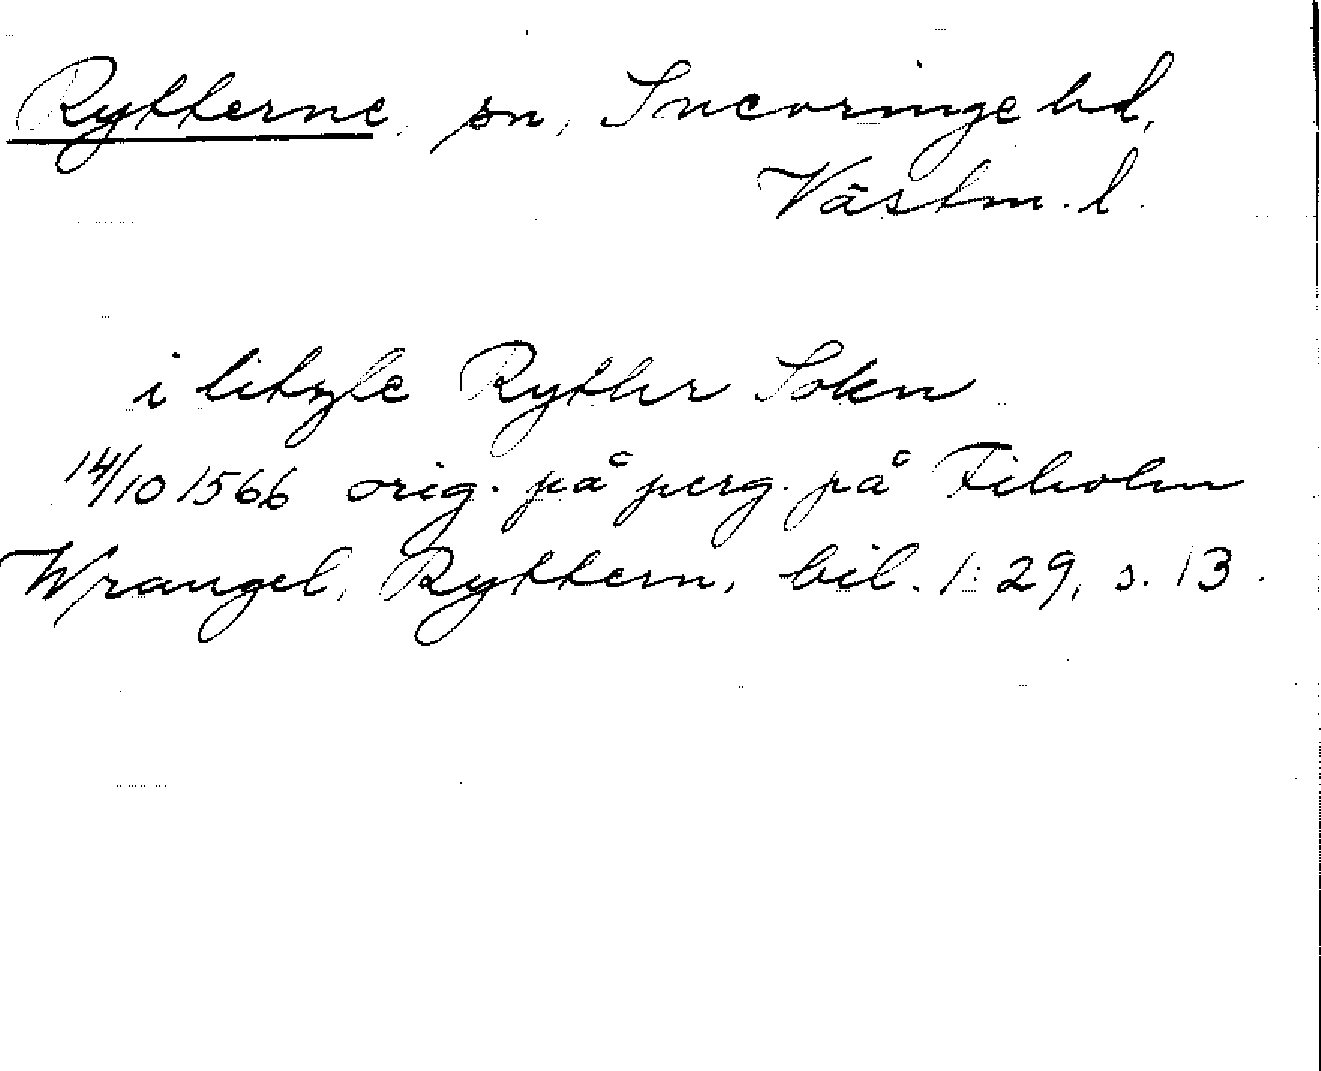 Rytterne, sn, Snevringe hd,
Västm. l.
i litzle Rytter Sokn
14/10 1566 orig. på perg. på Fiholm
Wrangel, Ryttern, bil. 1:29, s. 13.